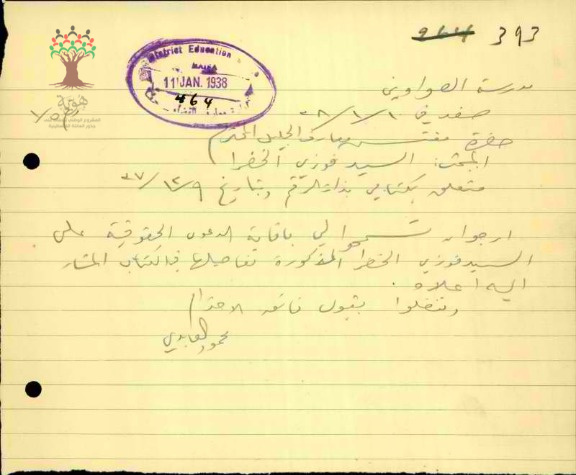 964 393
District Education
HAIFA
11 JAN. 1938
464
هوية
مدرسة الصواوين
صفد في ١٠/١/٣٨
حضرة مفتش معارف الجليل المحترم
المبحث: السيد فوزي الخضرا
متعلق بكتابي بذات الرقم وبتاريخ ٩/١٢/٣٧
ارجو ان تسمحوا لي باقامة الدعوى الحقوقية على
السيد فوزي الخضرا المذكورة تفاصيلها في الكتاب المشار
اليه اعلاه.
وتفضلوا بقبول فائق الاحترام
محمود العابدي